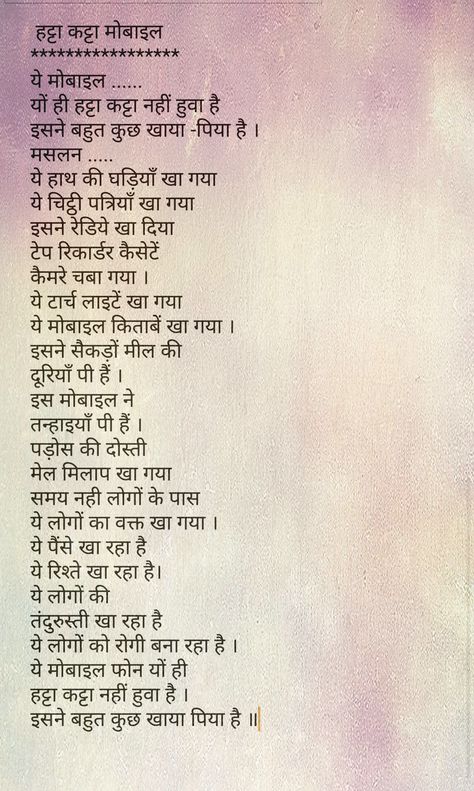 हट्टा कट्टा मोबाइल
*****************
ये मोबाइल ......
यों ही हट्टा कट्टा नहीं हुवा है
इसने बहुत कुछ खाया -पिया है ।
मसलन .....
ये हाथ की घड़ियाँ खा गया
ये चिट्ठी पत्रियाँ खा गया
इसने रेडिये खा दिया
टेप रिकार्डर कैसेटें
कैमरे चबा गया ।
ये टार्च लाइटें खा गया
ये मोबाइल किताबें खा गया ।
इसने सैकड़ों मील की
दूरियाँ पी हैं ।
इस मोबाइल ने
तन्हाइयाँ पी हैं ।
पड़ोस की दोस्ती
मेल मिलाप खा गया
समय नही लोगों के पास
ये लोगों का वक्त खा गया ।
ये पैंसे खा रहा है
ये रिश्ते खा रहा है।
ये लोगों की
तंदुरुस्ती खा रहा है
ये लोगों को रोगी बना रहा है ।
ये मोबाइल फोन यों ही
हट्टा कट्टा नहीं हुवा है ।
इसने बहुत कुछ खाया पिया है ॥